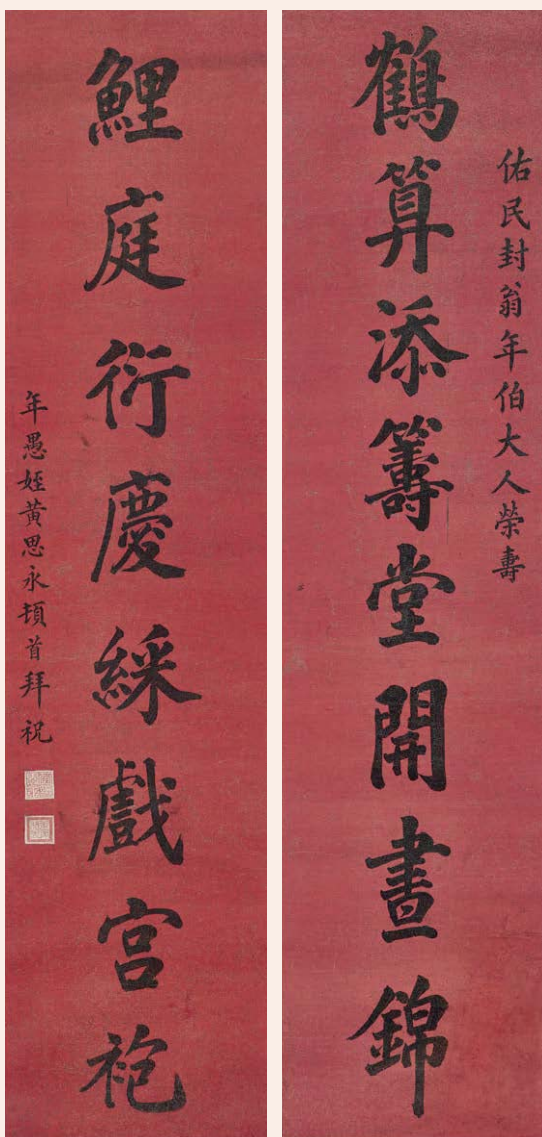 佑民封翁年伯大人榮壽
鶴算添籌堂開晝錦
鯉庭衍慶綵戲宮袍
年愚姪黃思永頓首拜祝